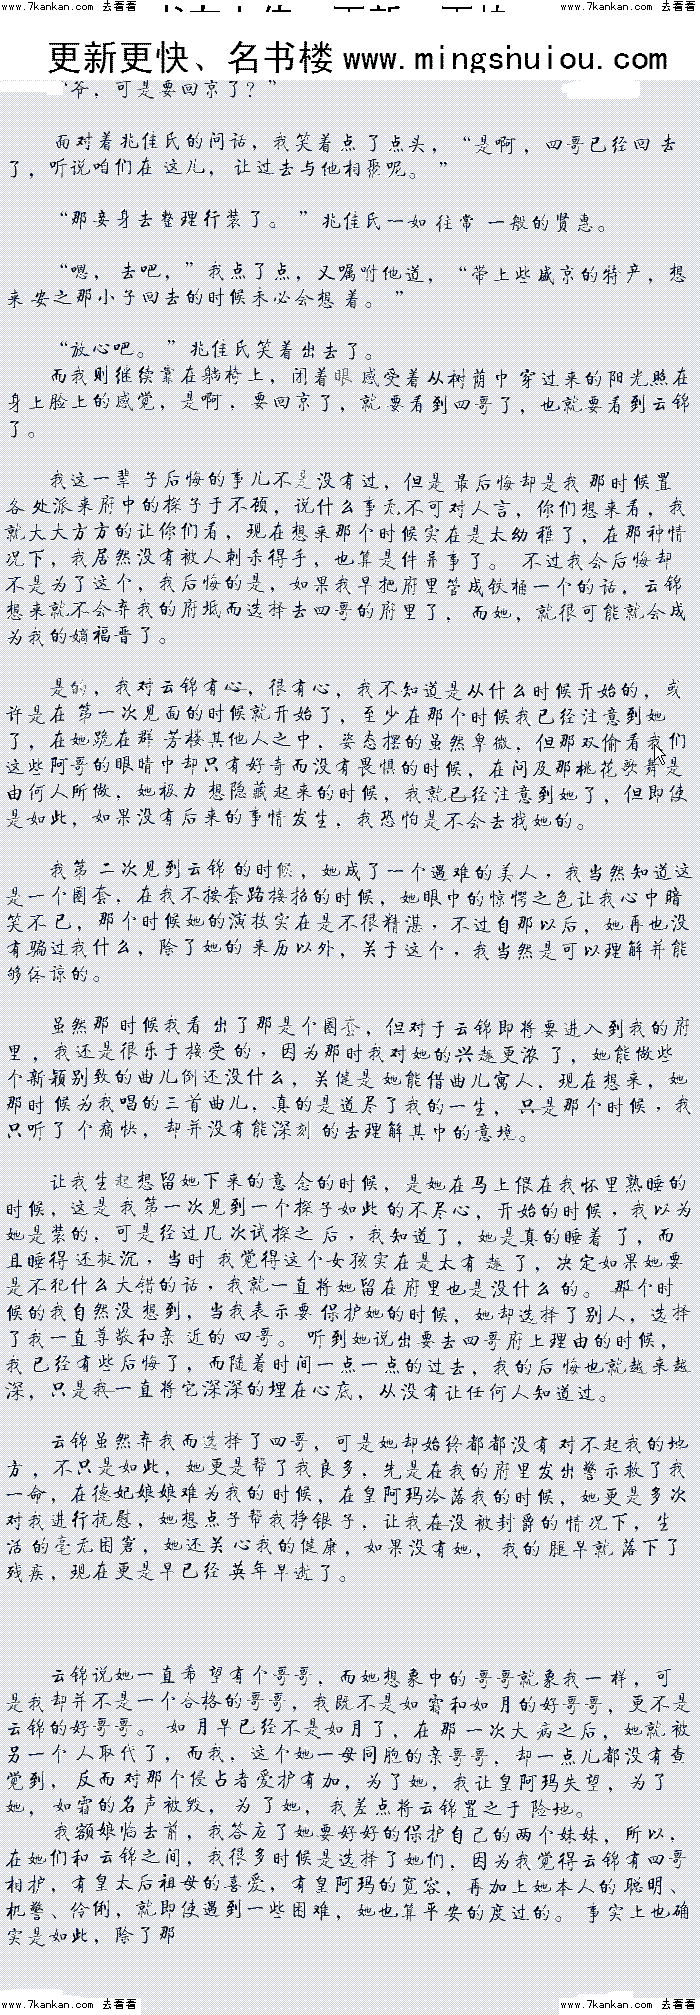 www.7kankan.com 去看看 www.7kankan.com 去看看
更新更快、名书楼 www.mingshuiou.com
“爷，可是要回京了？”
面对着兆佳氏的问话，我笑着点了点头，“是啊，四哥已经回去
了，听说咱们在这儿，让过去与他相聚呢。”
“那妾身去整理行装了。”兆佳氏一如往常一般的贤惠。
“嗯，去吧，”我点了点，又嘱咐他道，“带上些盛京的特产，想
来安之那小子回去的时候未必会想着。”
“放心吧。”兆佳氏笑着出去了。
而我则继续靠在躺椅上，闭着眼感受着从树荫中穿过来的阳光照在
身上脸上的感觉，是啊，要回京了，就要看到四哥了，也就要看到云锦
了。
我这一辈子后悔的事儿不是没有过，但是最后悔却是我那时候置
各处派来府中的探子于不顾，说什么事无不可对人言，你们想来看，我
就大大方方的让你们看，现在想来那个时候实在是太幼稚了，在那种情
况下，我居然没有被人刺杀得手，也算是件异事了。不过我会后悔却
不是为了这个，我后悔的是，如果我早把府里管成铁桶一个的话，云锦
想来就不会弃我的府坻而选择去四哥的府里了，而她，就很可能就会成
为我的嫡福晋了。
是的，我对云锦有心，很有心，我不知道是从什么时候开始的，或
许是在第一次见面的时候就开始了，至少在那个时候我已经注意到她
了，在她跪在群芳楼其他人之中，姿态摆的虽然卑微，但那双偷看我们
这些阿哥的眼睛中却只有好奇而没有畏惧的时候，在问及那桃花歌舞是
由何人所做，她极力想隐藏起来的时候，我就已经注意到她了，但即使
是如此，如果没有后来的事情发生，我恐怕是不会去找她的。
我第二次见到云锦的时候，她成了一个遇难的美人，我当然知道这
是一个圈套，在我不按套路接招的时候，她眼中的惊愕之色让我心中暗
笑不已，那个时候她的演技实在是不很精湛，不过自那以后，她再也没
有骗过我什么，除了她的来历以外，关于这个，我当然是可以理解并能
够体谅的。
虽然那时候我看出了那是个圈套，但对于云锦即将要进入到我的府
里，我还是很乐于接受的，因为那时我对她的兴趣更浓了，她能做些
个新颖别致的曲儿倒还没什么，关健是她能借曲儿寓人，现在想来，她
那时候为我唱的三首曲儿，真的是道尽了我的一生，只是那个时候，我
只听了个痛快，却并没有能深刻的去理解其中的意境。
让我生起想留她下来的意念的时候，是她在马上偎在我怀里熟睡的
时候，这是我第一次见到一个探子如此的不尽心，开始的时候，我以为
她是装的，可是经过几次试探之后，我知道了，她是真的睡着了，而
且睡得还挺沉，当时我觉得这个女孩实在是太有趣了，决定如果她要
是不犯什么大错的话，我就一直将她留在府里也是没什么的。那个时
候的我自然没想到，当我表示要保护她的时候，她却选择了别人，选择
了我一直尊敬和亲近的四哥。听到她说出要去四哥府上理由的时候，
我已经有些后悔了，而随着时间一点一点的过去，我的后悔也就越来越
深，只是我一直将它深深的埋在心底，从没有让任何人知道过。
云锦虽然弃我而选择了四哥，可是她却始终都都没有对不起我的地
方，不只是如此，她更是帮了我良多，先是在我的府里发出警示救了我
一命，在德妃娘娘难为我的时候，在皇阿玛冷落我的时候，她更是多次
对我进行抚慰，她想点子帮我挣银子，让我在没被封爵的情况下，生
活的毫无困窘，她还关心我的健康，如果没有她，我的腿早就落下了
残疾，现在更是早已经英年早逝了。
云锦说她一直希望有个哥哥，而她想象中的哥哥就象我一样，可
是我却并不是一个合格的哥哥，我既不是如霜和如月的好哥哥，更不是
云锦的好哥哥。如月早已经不是如月了，在那一次大病之后，她就被
另一个人取代了，而我，这个她一母同胞的亲哥哥，却一点儿都没有查
觉到，反而对那个侵占者爱护有加，为了她，我让皇阿玛失望，为了
她，如霜的名声被毁，为了她，我差点将云锦置之于险地。
我额娘临去前，我答应了她要好好的保护自己的两个妹妹，所以，
在她们和云锦之间，我很多时候是选择了她们，因为我觉得云锦有四哥
相护，有皇太后祖母的喜爱，有皇阿玛的宽容，再加上她本人的聪明、
机警、伶俐，就即使遇到一些困难，她也算平安的度过的。事实上也确
实是如此，除了那
www.7kankan.com 去看看 www.7kankan.com 去看看